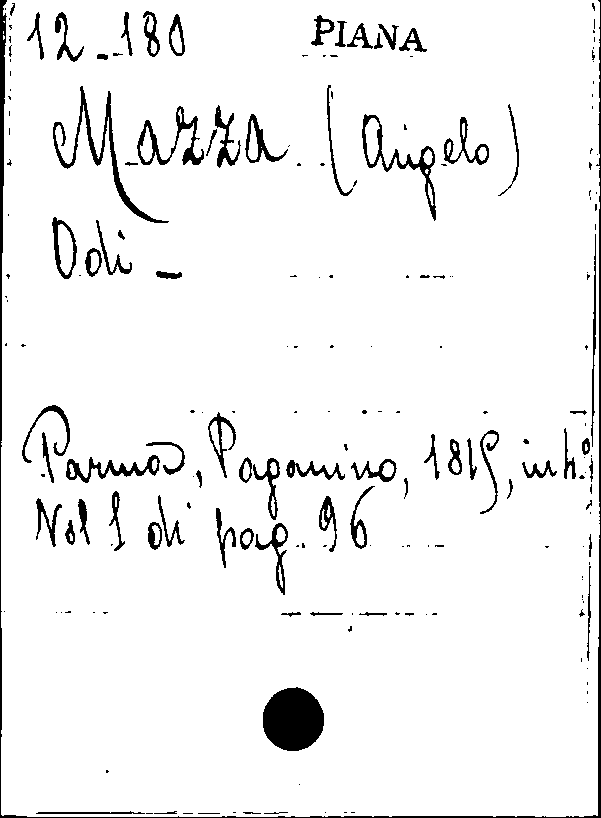 12-180 PIANA
Mazza (Angelo)
Odi -
Parma, Paganino, 1815, in
Vol 1 di pag. 96